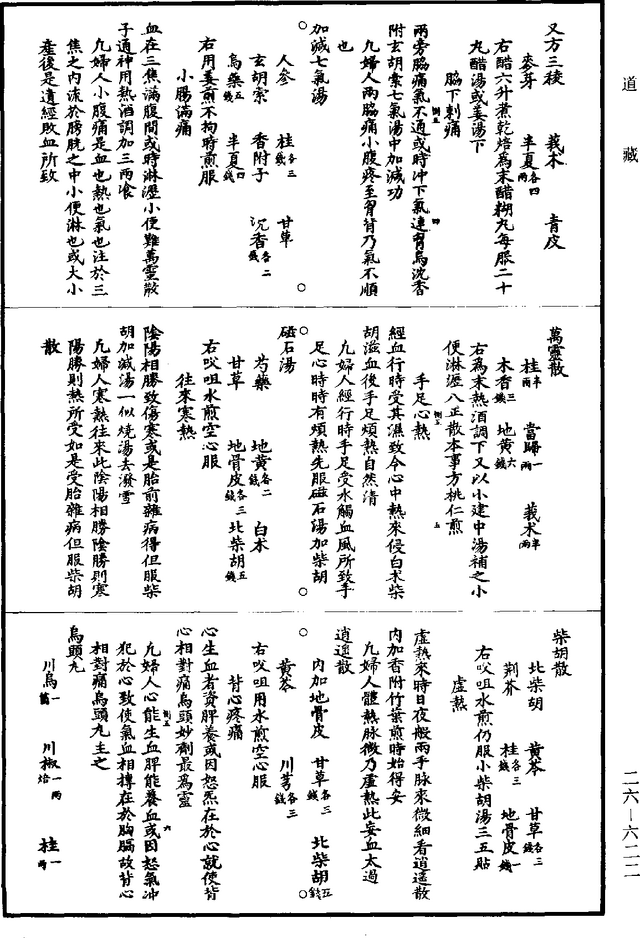 道藏
又方三稜
麥芽　莪朮　青皮
半夏各四兩
右醋六升煮乾焙為末醋糊丸每服二十
丸醋湯或姜湯下
脇下刺痛
兩旁脇痛氣不通或時冲下氣連胃烏沈香
附玄胡索七氣湯中加減功
凡婦人兩脇痛小腹疼至胃背乃氣不順
也
加減七氣湯
人參　桂各三錢　甘草
玄胡索　香附子　沉香各二錢
烏藥五錢　半夏四錢
右用姜煎不拘時煎服
小腸滿痛
血在三焦滿腹間或時淋瀝小便難萬靈散
子通神用熱酒調加三兩飡
凡婦人小腹痛是血也熱也氣也注於三
焦之内流於膀胱之中小便淋也或大小
產後是遺經敗血所致
萬靈散
桂半兩　當歸一兩　莪朮半兩
木香三錢　地黃六錢
右為末熱酒調下又以小建中湯補之小
便淋瀝八正散本事方桃仁煎
手足心熱
經血行時受其濕致令心中熱來侵白朮柴
胡滋血後手足煩熱自然清
凡婦人經行時手足受水觸血風所致手
足心時時有煩熱先服磁石湯加柴胡
磁石湯
芍藥　地黃各二錢　白朮
甘草　地骨皮各三錢　北柴胡五錢
右㕮咀水煎空心服
往來寒熱
陰陽相勝致傷寒或是胎前雜病得但服柴
胡加減湯一似燒湯去潑雪
凡婦人寒熱往來此陰陽相勝陰勝則寒
陽勝則熱所受如是受胎雜病但服柴胡
散
柴胡散
北柴胡　黃芩　甘草各三錢
荆芥　桂各三錢　地骨皮一錢
右㕮咀水煎仍服小柴胡湯三五貼
虛熱
虛熱來時日夜般兩手脉來微細看逍遙散
内加香附竹葉煎時始得安
凡婦人體熱脉微乃虛熱此妄血太過
逍遙散
内加地骨皮　甘草各三錢　北柴胡五錢
黃芩　川芎各三錢
右㕮咀用水煎空心服
背心疼痛
心生血者資脾養或因怒炁在於心就使背
心相對痛烏頭妙劑最為靈
凡婦人心能生血脾能養血或因怒氣冲
犯於心致使氣血相摶在於胸膈故背心
相對痛烏頭丸主之
烏頭丸
川烏一箇　川椒一兩焙　桂一兩
二六—六二二